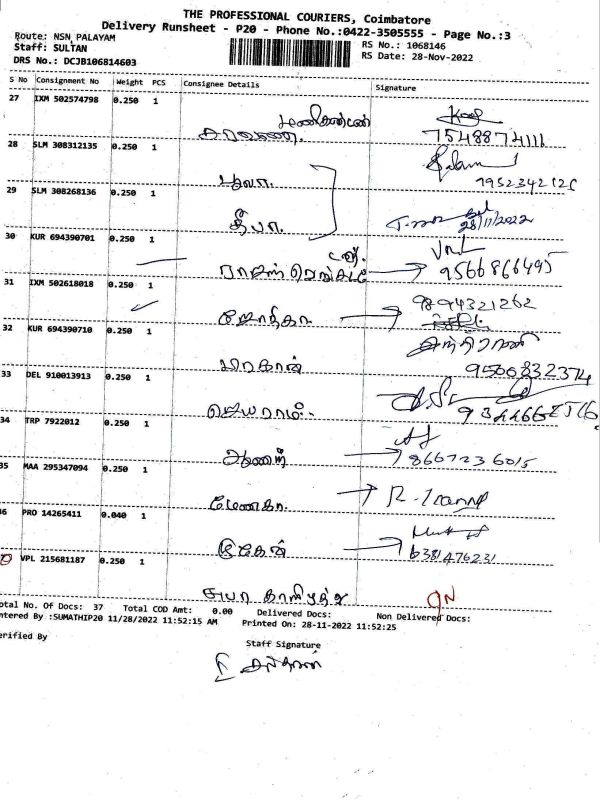 THE PROFESSIONAL COURIERS, Coimbatore
Delivery Runsheet - P20 - Phone No.:0422-3505555 - Page No.:3
Route: NSN PALAYAM
RS No.: 1068146
Staff: SULTAN
RS Date: 28-Nov-2022
DRS No.: DCJB106814603
S No Consignment No Weight PCS Consignee Details Signature
27 IXM 502574798 0.250 1
மணிகண்டன்
சரவணை. 7548874111
28 SLM 308312135 0.250 1
பூவா. 7952342126
29 SLM 308268136 0.250 1
தீபா. 28/11/2022
30 KUR 694390701 0.250 1
9566866495
31 IXM 502618018 0.250 1
9894321262
ஜோதிகா.
32 KUR 694390710 0.250 1
9500832374
33 DEL 910013913 0.250 1
ஜெயராம்.
34 TRP 7922012 0.250 1
8667236015
35 MAA 295347094 0.250 1
மேனகா.
36 PRO 14265411 0.040 1
6381476231
VPL 215681187 0.250 1
otal No. Of Docs: 37 Total COD Amt: 0.00 Delivered Docs: Non Delivered Docs:
ntered By :SUMATHIP20 11/28/2022 11:52:15 AM Printed On: 28-11-2022 11:52:25
erified By
Staff Signature